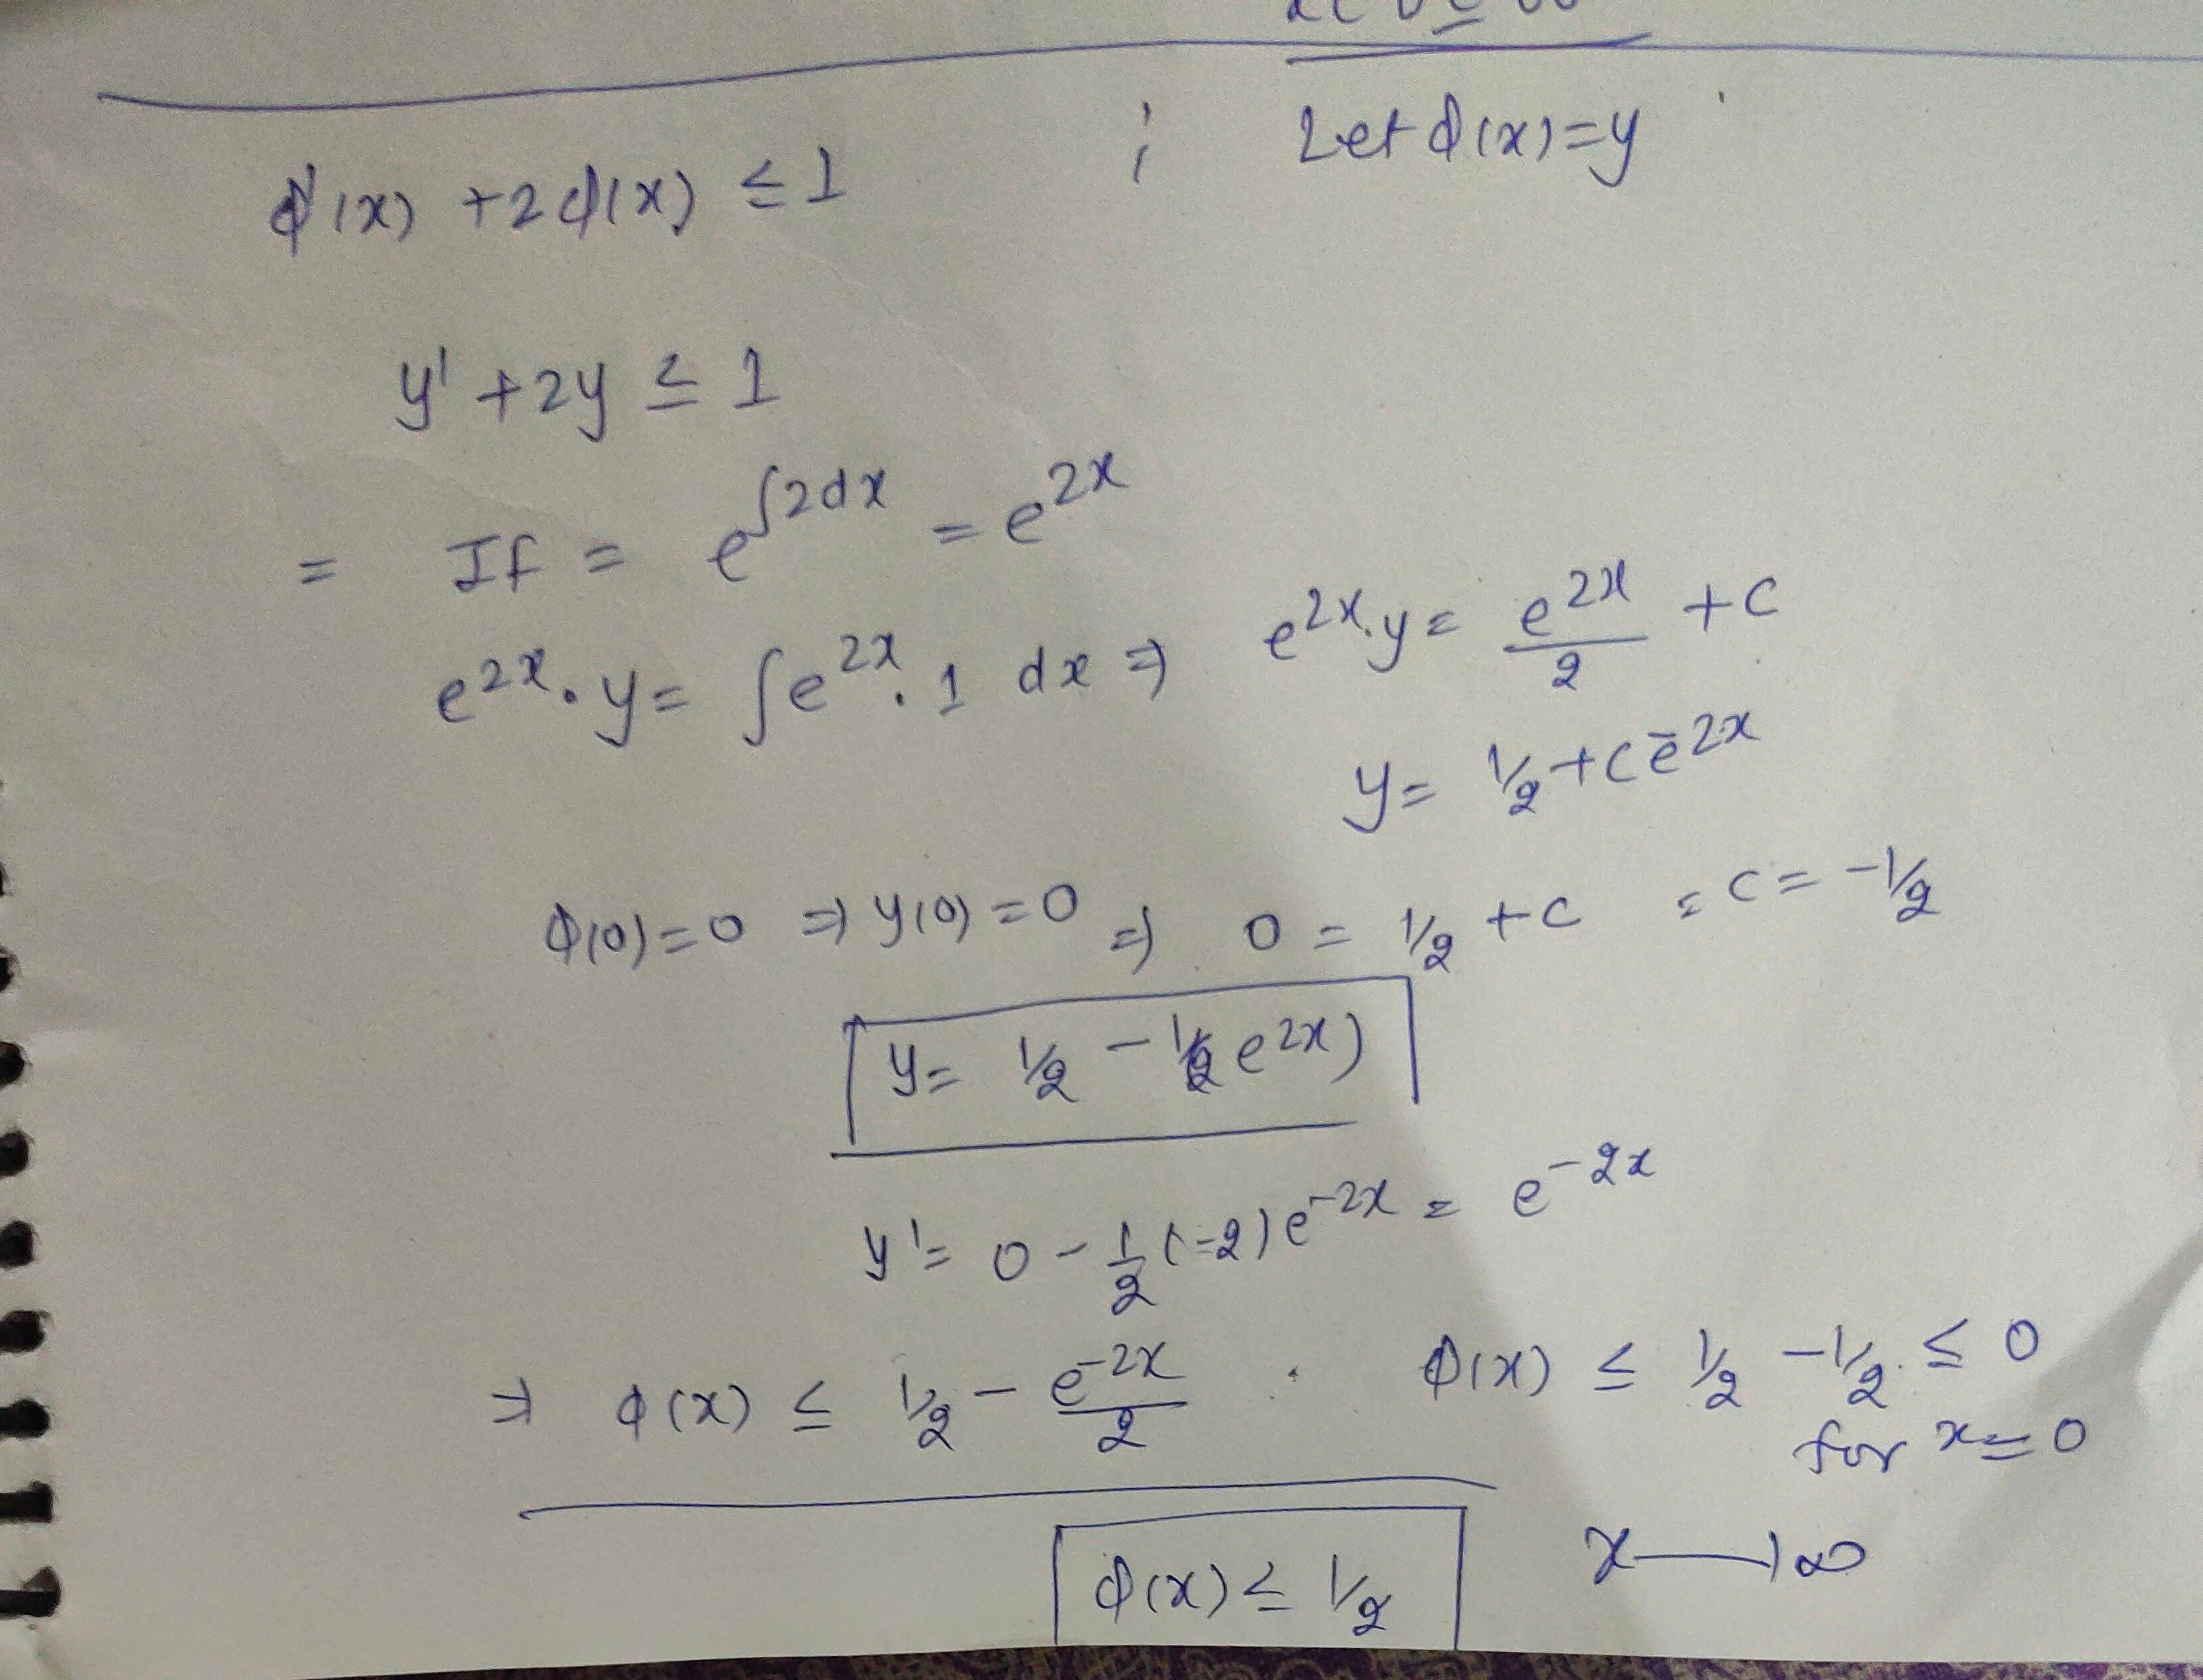 ϕ'(x) + 2ϕ(x) ≤ 1 ; Let ϕ(x) = y
y' + 2y ≤ 1
= If = e^∫2dx = e^2x
e^2x . y = ∫e^2x . 1 dx ⇒ e^2x . y = e^2x/2 + c
y = 1/2 + c e^-2x
ϕ(0) = 0 ⇒ y(0) = 0 ⇒ 0 = 1/2 + c = c = -1/2
y = 1/2 - 1/2 e^2x)
y' = 0 - 1/2 (-2) e^-2x = e^-2x
⇒ ϕ(x) ≤ 1/2 - e^-2x/2 . ϕ(x) ≤ 1/2 - 1/2 . ≤ 0
for x = 0
ϕ(x) ≤ 1/2 x → ∞